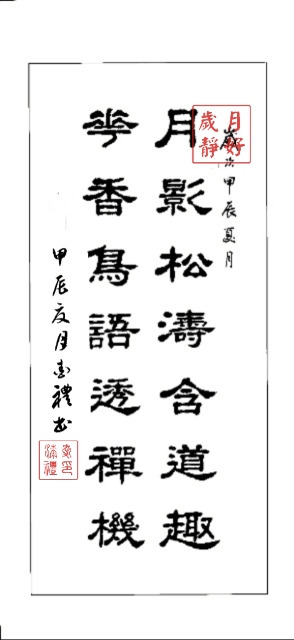 月好歲靜
歲次甲辰夏月
月影松濤含道趣
花香鳥語透禪機
甲辰夏月禮书